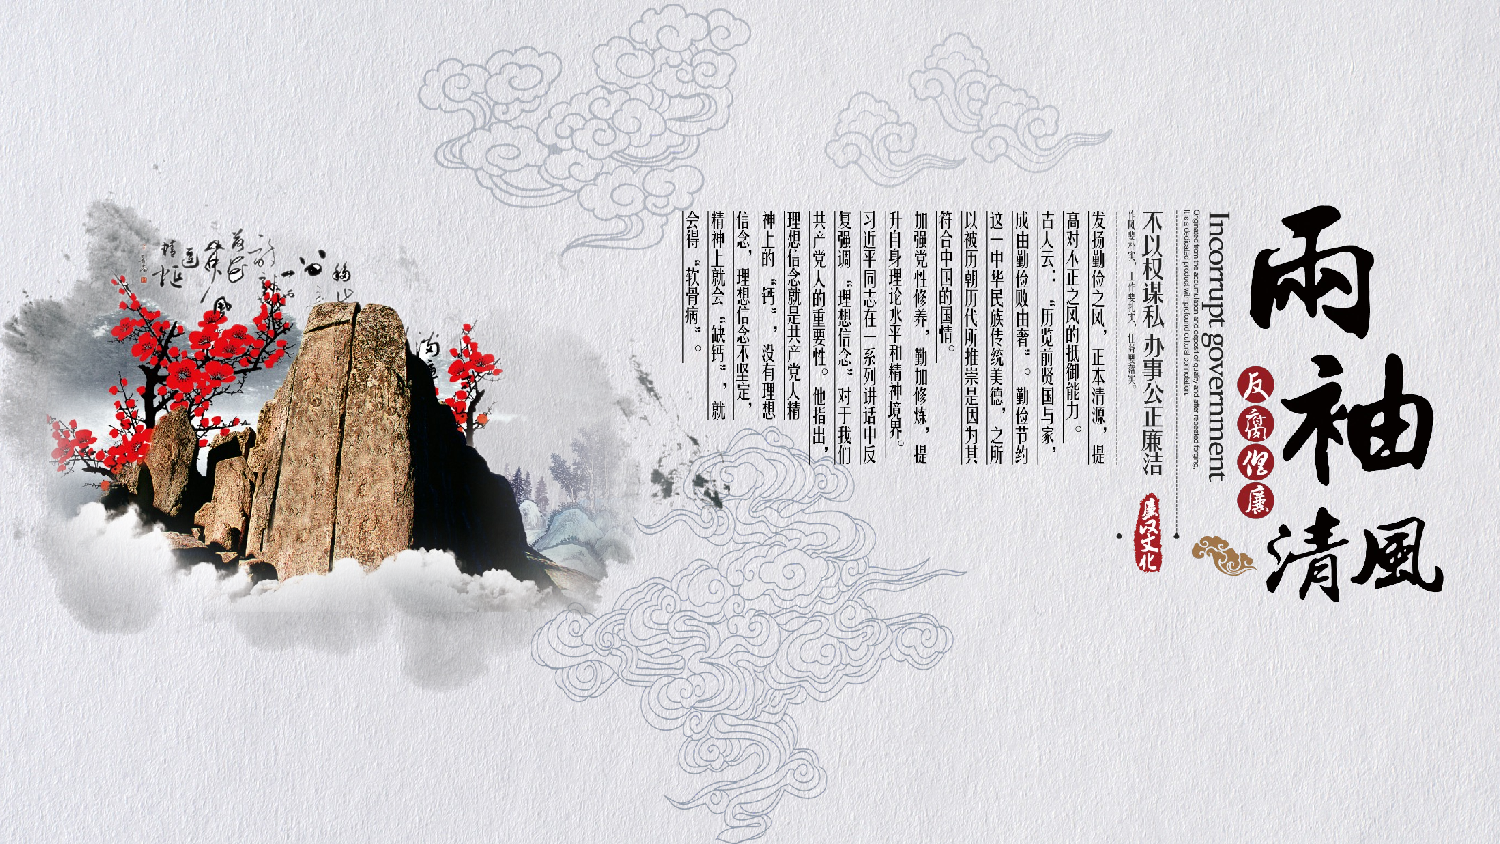 兩袖清風
反腐倡廉
Incorrupt government
Originated from the accumulation and deposit of quality and after repeated forging,
It is a dedicated product with profound cultural connotation.
不以权谋私 办事公正廉洁
廉汉文化
发扬勤俭之风，正本清源，提
高对不正之风的抵御能力。
古人云：“历览前贤国与家，
成由勤俭败由奢”。勤俭节约
这一中华民族传统美德，之所
以被历朝历代所推崇是因为其
符合中国的国情。
加强党性修养，勤加修炼，提
升自身理论水平和精神境界。
习近平同志在一系列讲话中反
复强调“理想信念”对于我们
共产党人的重要性。他指出，
理想信念就是共产党人精
神上的“钙”，没有理想
信念，理想信念不坚定，
精神上就会“缺钙”，就
会得“软骨病”。